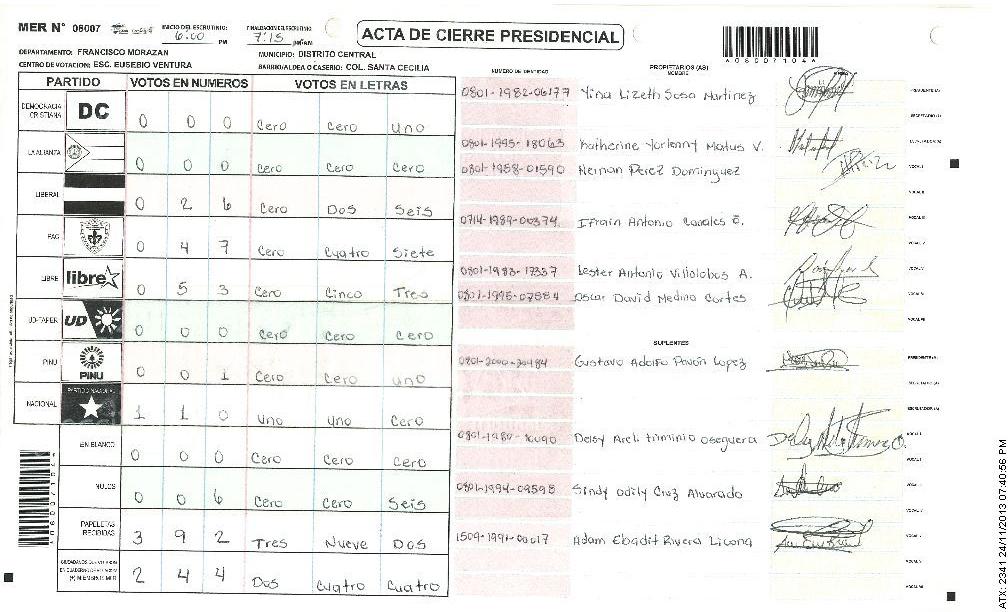 MER N° 08007
INICIO DEL ESCRUTINIO:
6:00 PM
FINALIZACION DEL ESCRUTINIO
7:15
ACTA DE CIERRE PRESIDENCIAL
DEPARTAMENTO: FRANCISCO MORAZAN
MUNICIPIO: DISTRITO CENTRAL
CENTRO DE VOTACION: ESC. EUSEBIO VENTURA
BARRIO/ALDEA O CASERIO: COL. SANTA CECILIA
PARTIDO VOTOS EN NUMEROS VOTOS EN LETRAS
DEMOCRACIA CRISTIANA DC 0 0 0 Cero Cero uno
LA ALIANZA 0 0 0 Cero Cero Cero
LIBERAL 0 2 6 Cero Dos Seis
PAC 0 4 7 Cero Cuatro Siete
LIBRE libre 0 5 3 Cero Cinco Tres
UD-FAPER UD 0 0 0 Cero Cero Cero
PINU PINU 0 0 1 Cero Cero uno
NACIONAL PARTIDO NACIONAL 1 1 0 uno uno Cero
EN BLANCO 0 0 0 Cero Cero Cero
NULOS 0 0 6 Cero Cero Seis
PAPELETAS RECIBIDAS 3 9 2 Tres Nueve Dos
2 4 4 Dos Cuatro Cuatro
NUMERO DE IDENTIDAD
PROPIETARIOS (AS)
NOMBRE
0801-1982-06177 Yina Lizeth Sosa Martinez
0801-1995-18063 Katherine Yorlenny Matus V.
0801-1958-01590 Hernan Perez Dominguez
0714-1989-00374 Ifrain Antonio Canales O.
0801-1983-17337 Lester Antonio Villalobos A.
0801-1995-07884 Oscar David Medina Cortes
SUPLENTES
Gustavo Adolfo Pavon Lopez
Deisy Areli turminio oseguera
0801-1994-09598 Sindy Odily Cruz Alvarado
1509-1991-00017 Adam Ebadit Rivera Licona
A08007104A
ATX: 2341 24/11/2013 07:40:56 PM